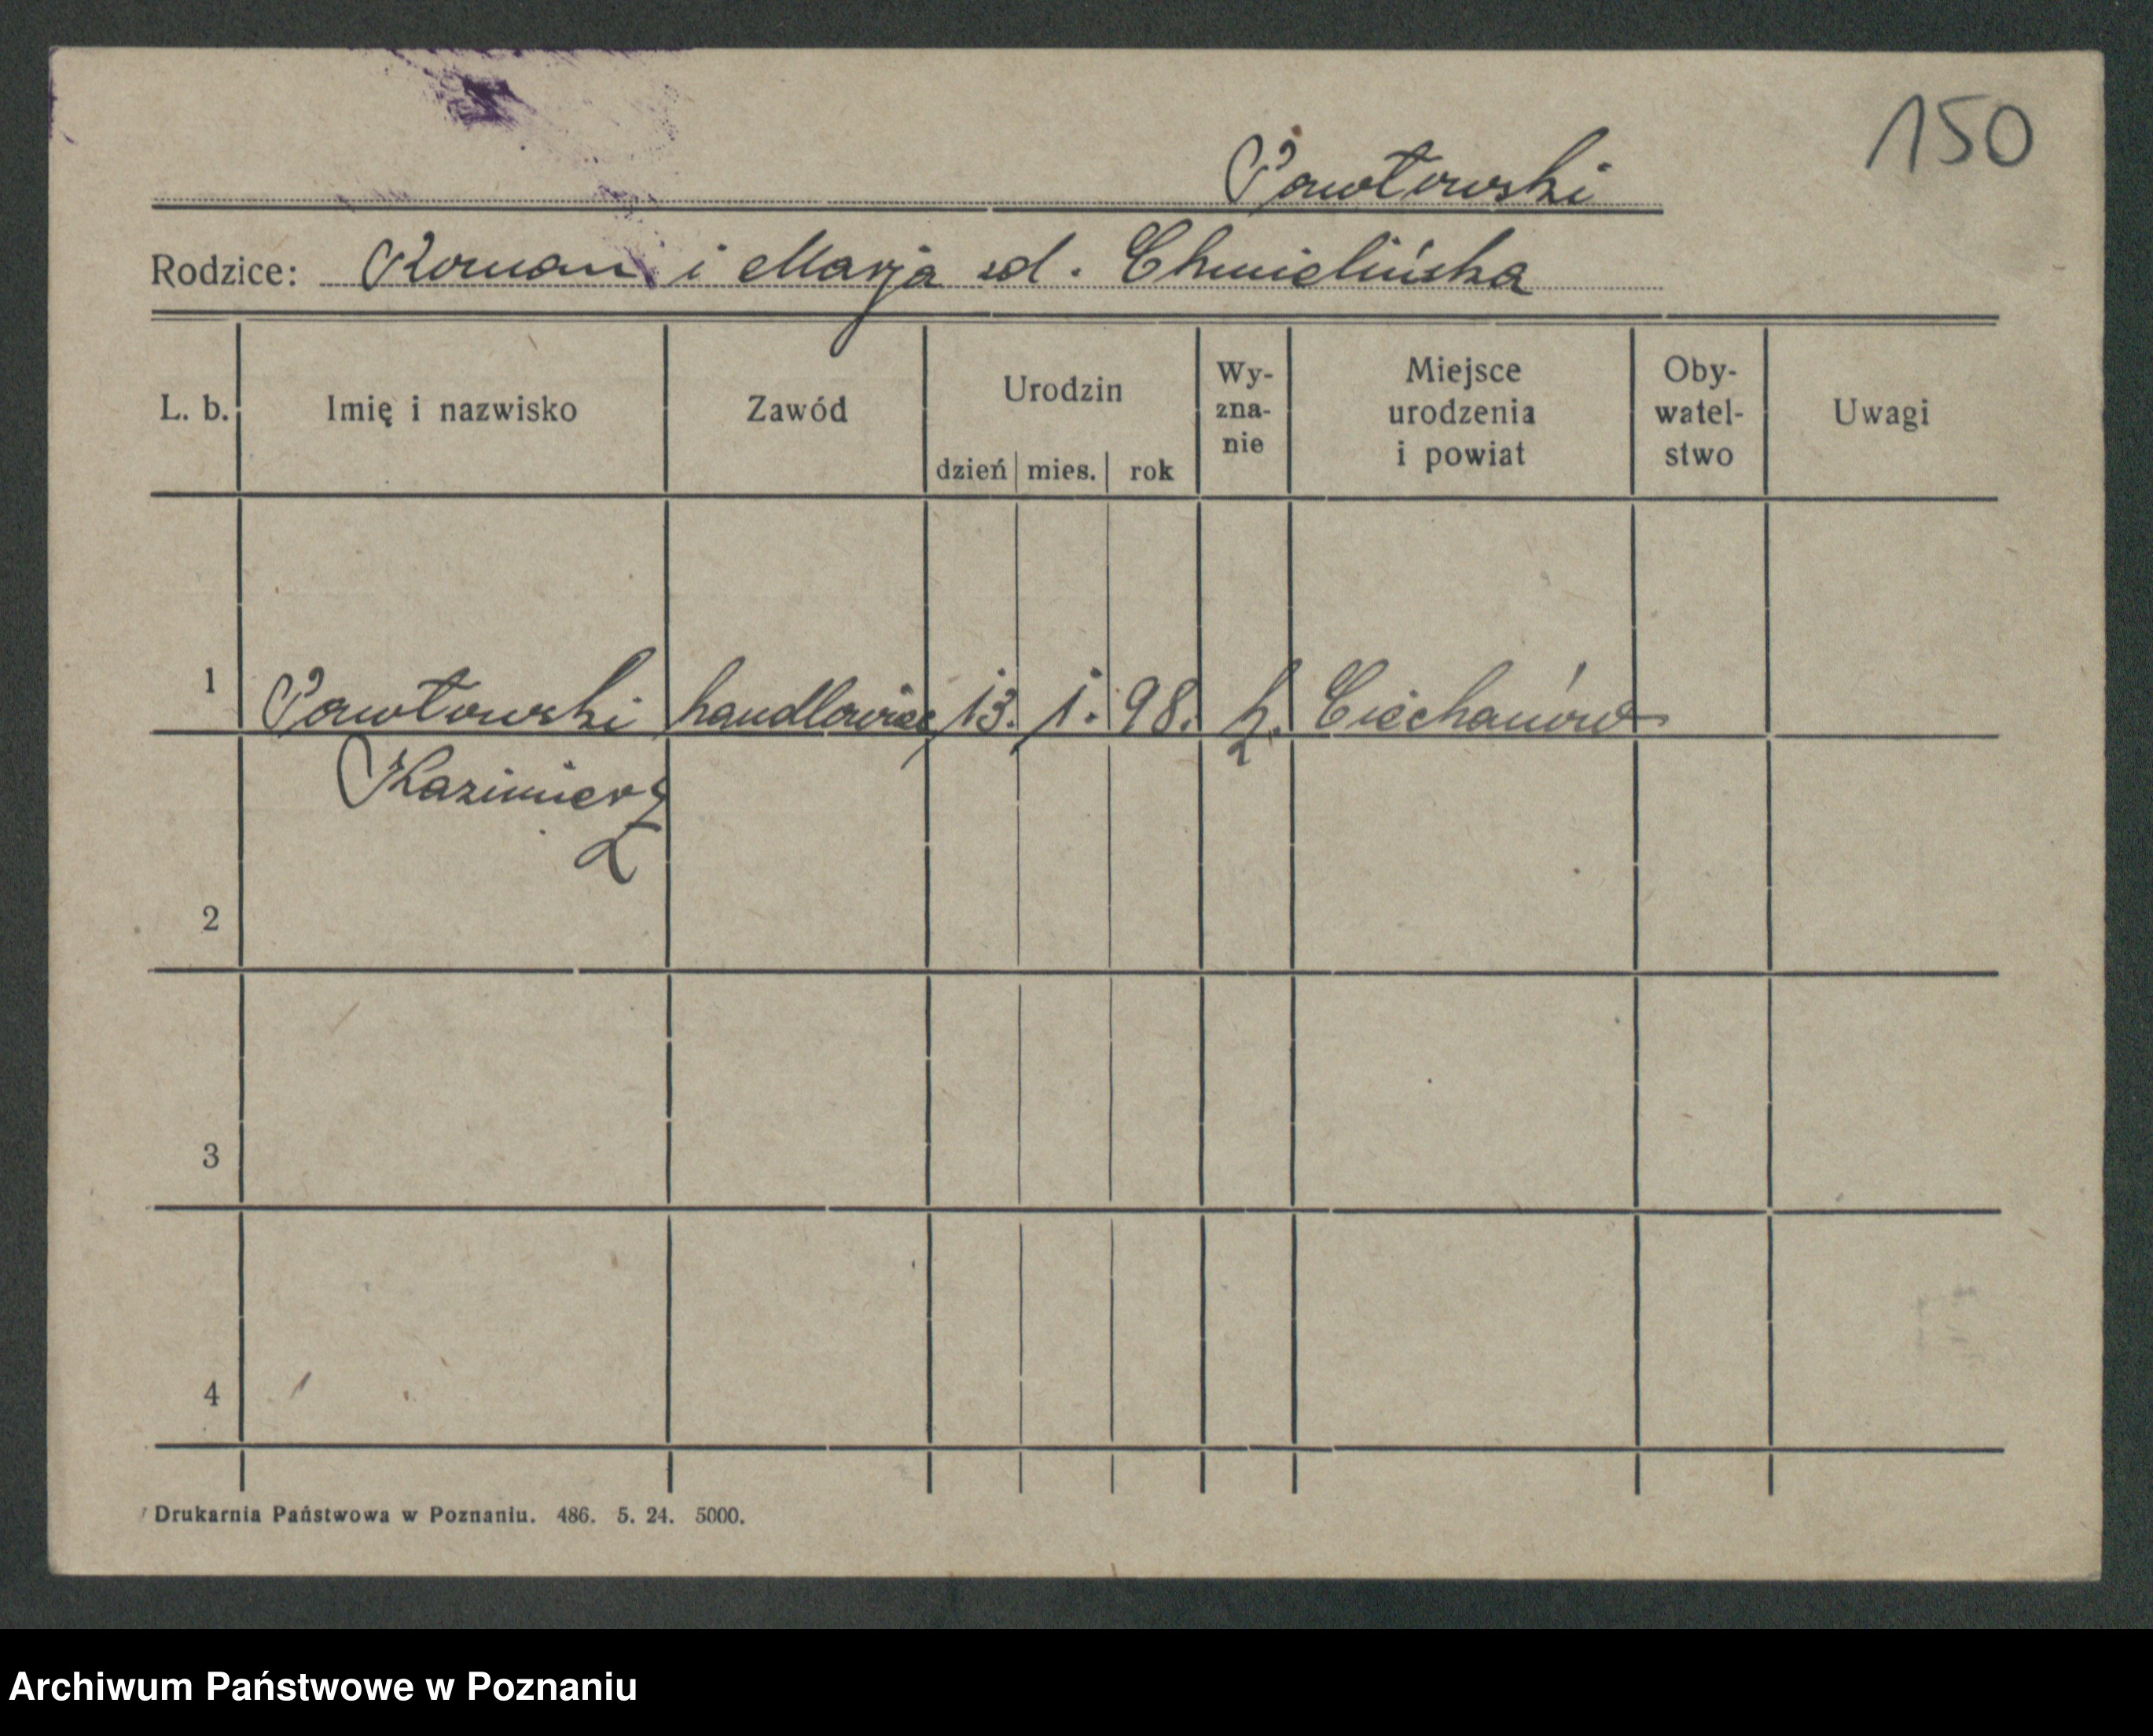 150
Pawłowski
Rodzice: Roman i Marja zd. Chmielińska
L. b. Imię i nazwisko Zawód Urodzin dzień mies. rok Wy-zna-nie Miejsce urodzenia i powiat Oby-watel-stwo Uwagi
1 Pawłowski handlowiec 13. 1. 98. k. Ciechanów
Kazimierz
2
3
4
Drukarnia Państwowa w Poznaniu. 486. 5. 24. 5000.
Archiwum Państwowe w Poznaniu